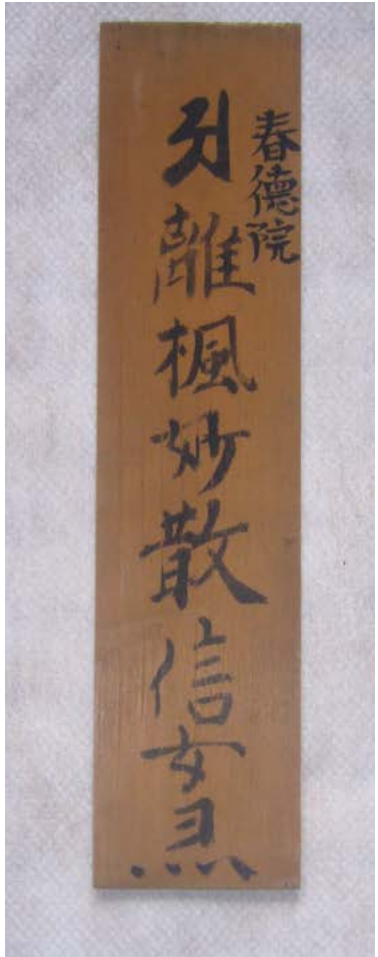 春徳院
離楓妙散信女灵